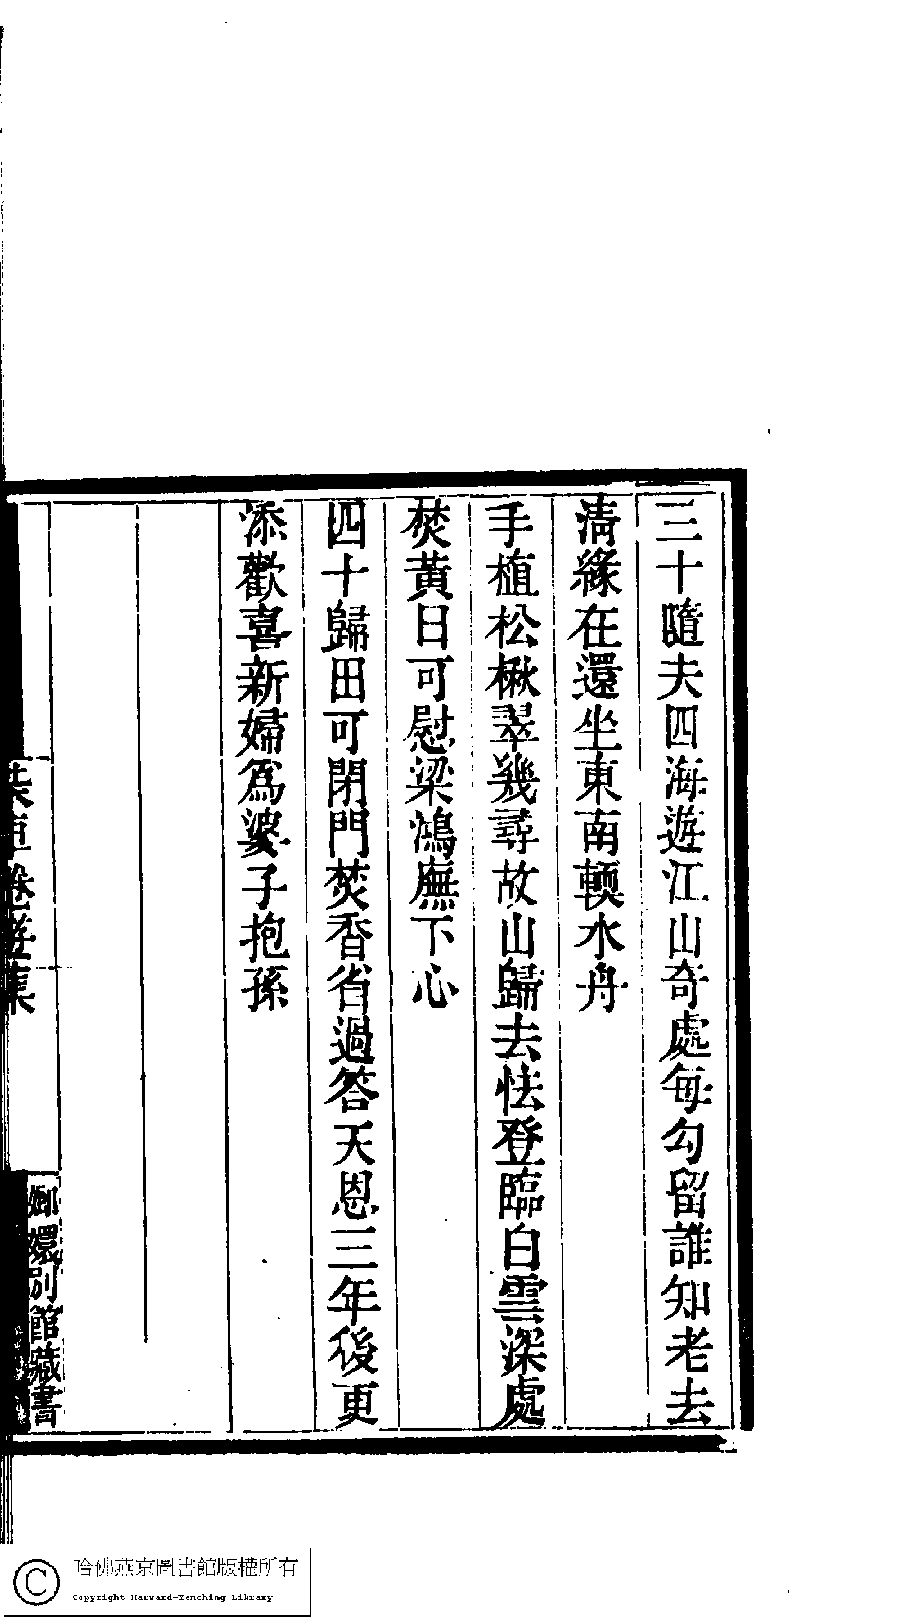 三十隨夫四海遊江山奇處每勾留誰知老去
清緣在還坐東南輭水舟
手植松楸翠幾尋故山歸去怯登臨白雲深處
焚黃日可慰梁鴻廡下心
四十歸田可閉門焚香省過答天恩三年後更
添歡喜新婦爲婆子抱孫
卷葹集
嬛別館藏書
哈佛燕京圖書館版權所有
Copyright Harvard-Yenching Library